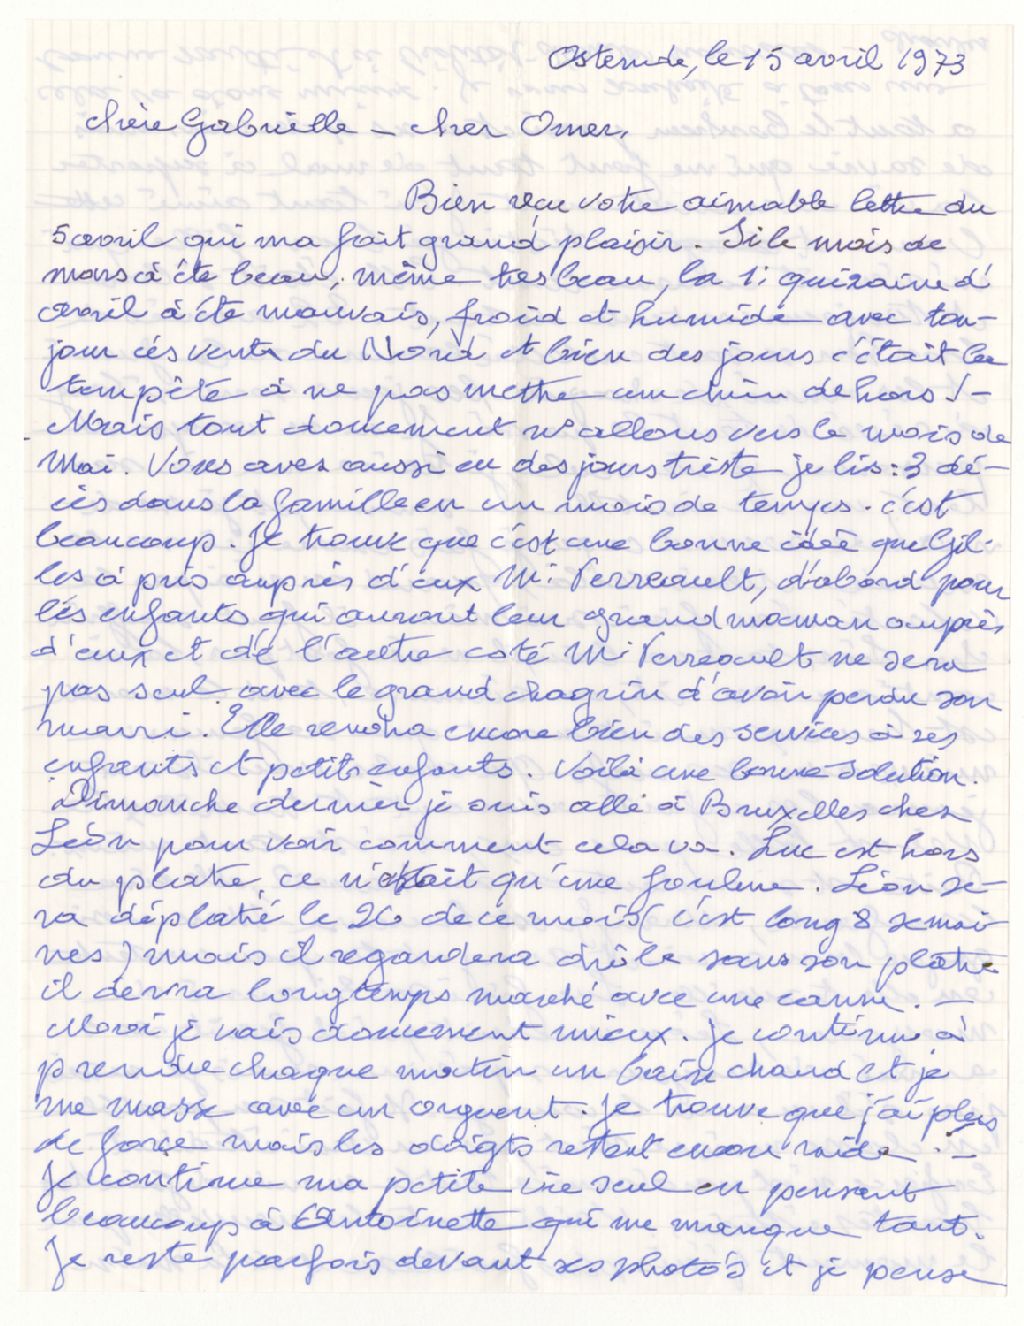 Ostende, le 15 avril 1973
chère Gabriëlle - cher Omer,
Bien reçu votre aimable lettre du
5 avril qui ma fait grand plaisir. Si le mois de
mars à été beau, même tres beau, la 1: quizaine d'
avril à été mauvais, froid et humide avec tou-
jour cés vents du Nord et bien des jours c'était la
tempête à ne pas mettre un chien dehors! -
Mais tout doucement ns allons vers le mois de
Mai. Vous avez aussi eu des jours triste je lis: 3 dé-
cés dans la famille en un mois de temps. c'est
beaucoup. Je trouve que c'est une bonne idée que Gil-
les à pris auprès d'eux Mi Verreault, d'abord pour
lés enfants qui auront leur grand maman auprès
d'eux et dé l'autre coté Mi Verreault ne sera
pas seul avec le grand chagrin d'avoir perdu son
marri. Elle rendra encore bien des services à ses
enfants et petits enfants. Voilà une bonne solution.
Dimanche dernier je suis allé à Bruxelles chez
Léon pour voir comment cela va. Luc est hors
du platre, ce n'était qu'une foulure. Léon se-
ra déplatré le 26 de ce mois (c'est long 8 semai-
nes) mais il regardera drôle sans son platre
il devra longtemps marché avec une canne. -
Moi je vais doucement mieux. Je continu à
prendre chaque matin un bain chaud et je
me masse avec un onguent. Je trouve que j'ai plus
de force mais les doigts restent encore raide. -
Je continue ma petite vie seul en pensant
beaucoup à Antoinette qui me manque tant.
Je reste parfois devant ses photo's et je pense